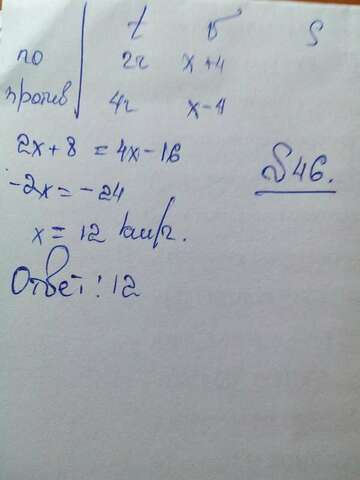 t v S
по 2ч x+4
против 4ч x-4
2x+8 = 4x-16
№46.
-2x = -24
x = 12 км/ч.
Ответ: 12